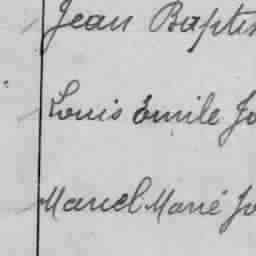 Jean Baptis
Louis Emile Jo
Marcel Marié Jo